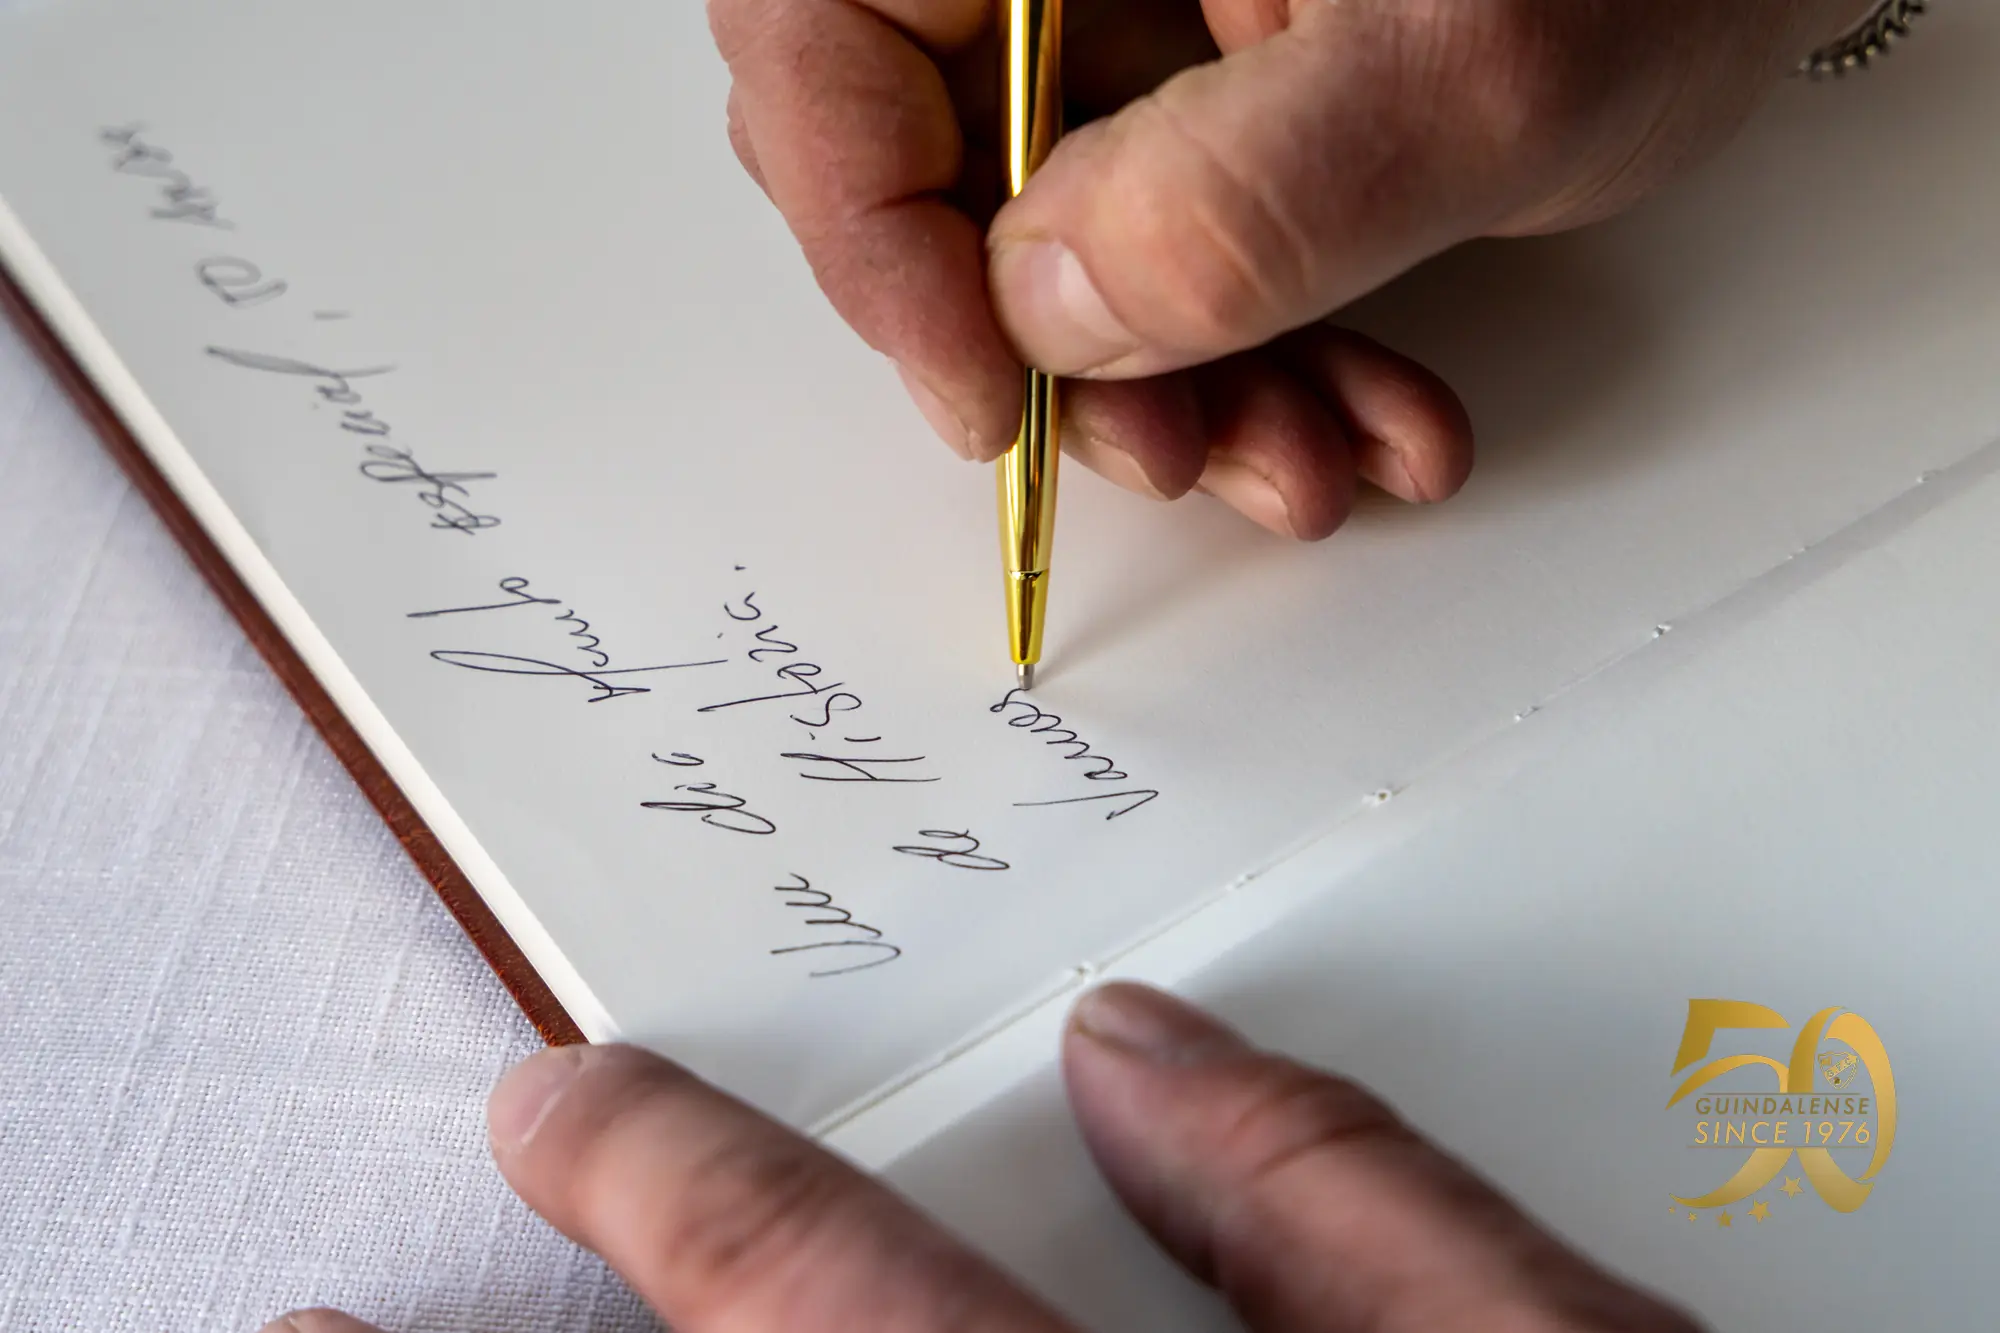 Um dia Muito especial, 50 Anos
de História.
Vamos
50
GUINDALENSE
SINCE 1976